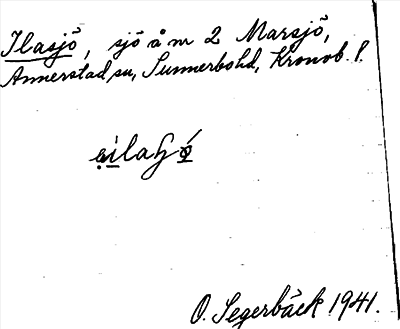 Ilasjö, sjö å m 2 Marsjö,
Annerstad sn, Sunnerbo hd, Kronob. l.
O. Segerbäck 1941.